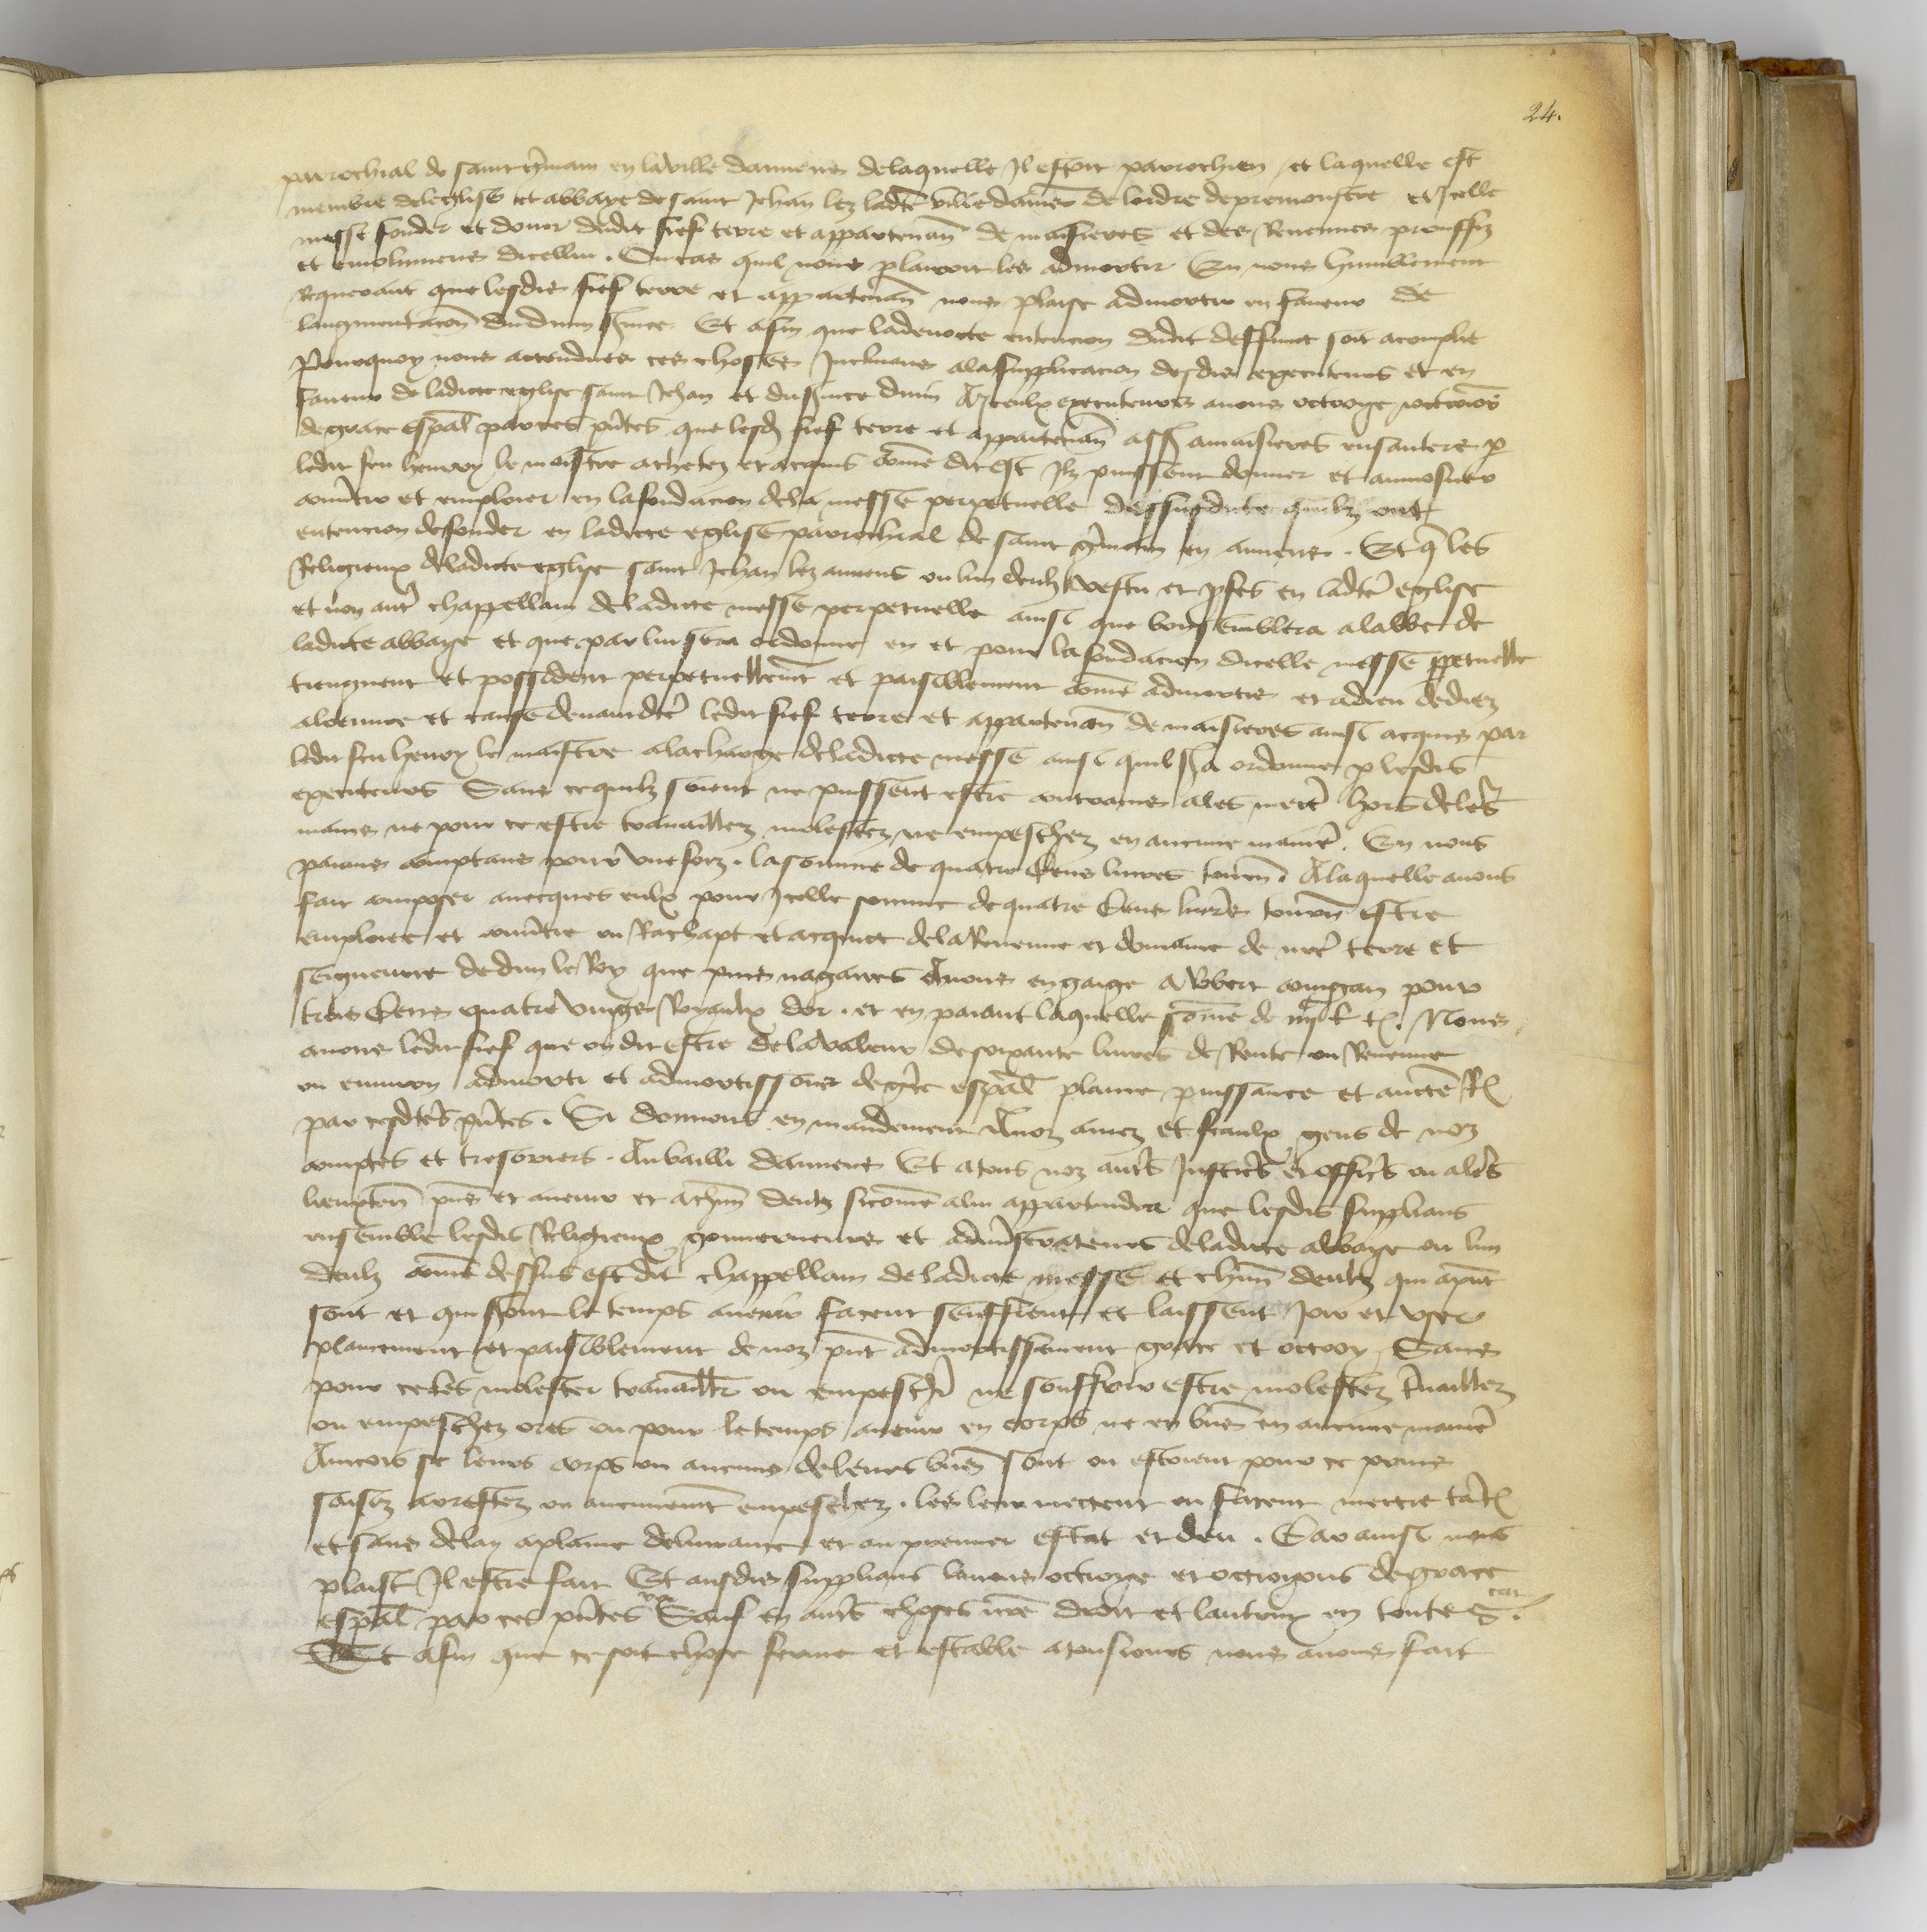 24.
parrochial de saint Gmain en laville damiens delaquelle Il estoit parrochien / et laquelle est
membre deleglise et abbaye de saint Jehan lez ladte ville damies de lordre depremonstre et Icelle
messe fonder et doner dudit fief terre et appartenan de maisieres et des Revenues prouffiz
et emolumens dicellui . En cas quil nous plairoit les admortir En nous humblement
Requerant que lesdis fief terre et appartenan nous plaise admortir en faveur de
laugmentacon dudivin svice Et afin que ladevocte entencion dudit deffunct soit acomplie
Pourquoy nous attendues ces choses Inclinans alasupplicacion desdis executeurs et en
faveur de ladicte eglise saint Jehan et du svice divin A Iceulx executeurs avons octroye octroions
degrace espal par ces pntes que lesd fief terre et appartenan ass amaisieres ensanters p
ledit feu henry le maistre achetez et acquis come dit est Ilz puissent donner et aumosner
convtir et emploier en lafondacion dela messe perpetuelle dessusdicte quilz ont
entencion defonder en ladicte eglise parrochial de saint gmain en amiens . Et q les
Religieux deladicte eglise saint Jehan lez amiens ou lun deulz vestu et pfes en ladte eglise
et non autr chappellain deladicte messe perpetuelle ainsi que bon semblera alabbe de
ladicte abbaye et que par lui sera ordonne en et pour lafondacion dicelle messe ppetuelle
tiengnent et possident perpetuellemt et paisiblement come admortis et adieu dediez
aloeuvre et cause devantdte ledit fief terre et appartenan de maisieres ainsi acquis par
ledit feu henry le maistre alacharge deladicte messe ainsi quil sa ordonne p lesdis
executeurs Sans cequilz soient ne puissent estre contrains ales mectre hors deles
mains ne pour ce estre travaillez molestez ne empeschez en aucune manie . En nous
paiant comptans pour unefoiz . lasomme de quatre Cens livres tourn . Alaquelle avons
fait composer avecques eulx pour Icelle somme dequatre Cens livres tourn estre
emploiee et convtie ou Rachapt et acquict dela Revenue et domaine de nre terre et
seigneurie dedun le Roy que puis nagaires Avons engaige a Robert conigan pour
trois Cens quatre vings Royaulx dor . et en paiant laquelle some de iiijc l t . Nous
avons ledit fief que on dit estre delavaleur de soixante livres de Rente ou Revenue
ou environ admorti et admortissons degce espal plaine puissance et aucte R
par cesdtes pntes . Si donnons en mandement Anoz amez et feaulx gens de noz
comptes et tresoriers . Aubailli damiens Et atous noz autrs Justics et offics ou alrs
lieuxten pns et avenir et achun deulz sicome alui appartendra que lesdis supplians
ensemble lesdis Religieux gouverneurs et administrateurs deladicte abbaye ou lun
deulz come dessus est dit chappellain deladicte messe et chun deulz qui apnt
sont et qui sont le temps avenir facent seuffrent et laissent Joir et user
plainement et paisiblement de noz pnt admortissement grace et octroy Sans
pour celes molester travaillr ou empeschr ne souffrir estre molestez tvaillez
ou empeschez ores ou pour letemps avenir en corps ne en biens en aucune manie
Aincois se leurs corps ou aucuns deleurs biens sont ou estoient pour ce prins
saisiz arrestez ou aucunemt empeschez . les leur mectent ou facent mectre tant
et sans delay aplaine delivrance et au premier estat et deu . Car ainsi nous
plaist Il estre fait Et ausdis supplians lavons octroye et octroyons degrace
espal par ces pntes Sauf en autrs choses nre droit et lautruy en toute s
Et afin que ce soit chose ferme et estable atousiours nous avons fait